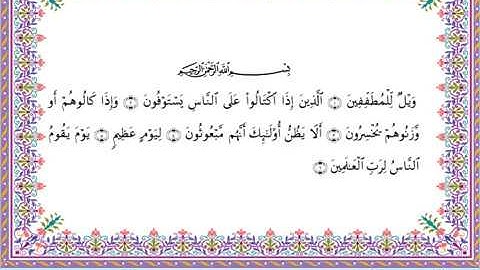 بِسْمِ اللَّهِ الرَّحْمَٰنِ الرَّحِيمِ
وَيْلٌ لِلْمُطَفِّفِينَ ۝ الَّذِينَ إِذَا اكْتَالُوا عَلَى النَّاسِ يَسْتَوْفُونَ ۝ وَإِذَا كَالُوهُمْ أَو
وَزَنُوهُمْ يُخْسِرُونَ ۝ أَلَا يَظُنُّ أُولَٰئِكَ أَنَّهُم مَّبْعُوثُونَ ۝ لِيَوْمٍ عَظِيمٍ ۝ يَوْمَ يَقُومُ
النَّاسُ لِرَبِّ الْعَالَمِينَ ۝